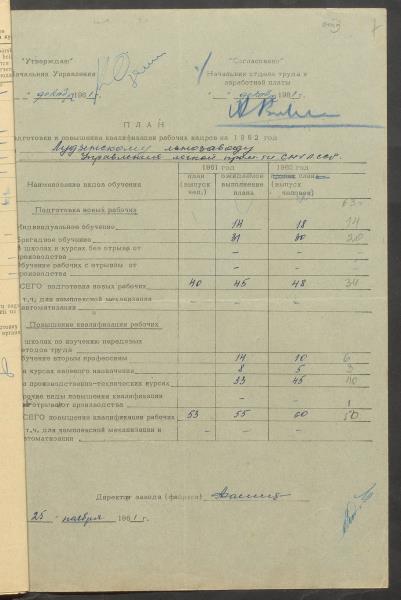 "Утверждаю" "Согласовано"
Начальник Управления Начальник отдела труда и
заработной платы
" " декабрь 1961 г. " " декабрь 1961 г.
ПЛАН
подготовки и повышения квалификации рабочих кадров на 1962 год
льнозаводу
Управления легкой
1961 год 1962
Наименование видов обучения план (выпуск чел.) ожидаемое выполнение плана план (выпуск человек)
63 г.
Подготовка новых рабочих
Индивидуальное обучение 14 18 14
Бригадное обучение 31 30 20
В школах и курсах без отрыва от
производства - - -
Обучение рабочих с отрывом от
производства - - -
ВСЕГО подготовка новых рабочих 40 45 48 34
т.ч. для комплексной механизации
автоматизации - -
Повышение квалификации рабочих
школах по изучению передовых
методов труда
Обучение вторым профессиям 14 10 6
а курсах целевого назначения 8 5 3
а производственно-технических курсах 33 45 40
рочие виды повышения квалификации
без отрыва от производства - - 1
ВСЕГО повышение квалификации рабочих 53 55 60 50
т.ч. для комплексной механизации и
автоматизации - - -
Директор завода (фабрики)
"25" ноября 1961 г.